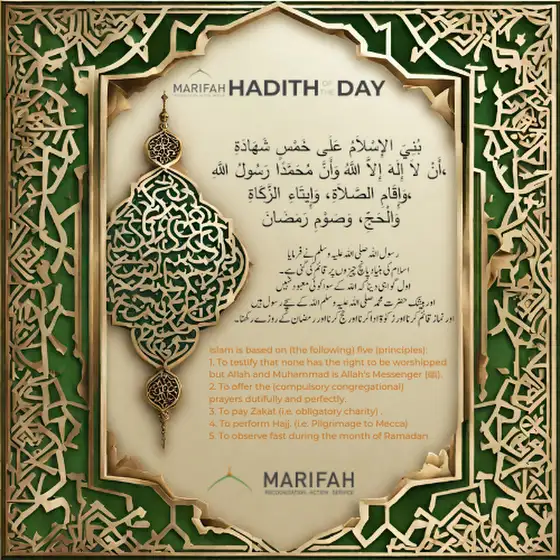 MARIFAH HADITH OF THE DAY
بُنِيَ الإِسْلاَمُ عَلَى خَمْسٍ شَهَادَةِ
أَنْ لاَ إِلَهَ إِلاَّ اللَّهُ وَأَنَّ مُحَمَّدًا رَسُولُ اللَّهِ،
وَإِقَامِ الصَّلاَةِ، وَإِيتَاءِ الزَّكَاةِ،
وَالْحَجِّ، وَصَوْمِ رَمَضَانَ
رسول اللہ صلی اللہ علیہ وسلم نے فرمایا
اسلام کی بنیاد پانچ چیزوں پر قائم کی گئی ہے۔
اول گواہی دینا کہ اللہ کے سوا کوئی معبود نہیں
اور بیشک حضرت محمد صلی اللہ علیہ وسلم اللہ کے سچے رسول ہیں
اور نماز قائم کرنا اور زکوٰۃ ادا کرنا اور حج کرنا اور رمضان کے روزے رکھنا۔
Islam is based on (the following) five (principles):
1. To testify that none has the right to be worshipped
but Allah and Muhammad is Allah's Messenger (ﷺ).
2. To offer the (compulsory congregational)
prayers dutifully and perfectly.
3. To pay Zakat (i.e. obligatory charity) .
4. To perform Hajj. (i.e. Pilgrimage to Mecca)
5. To observe fast during the month of Ramadan
MARIFAH
RECOGNIZATION - ACTION - SERVICE